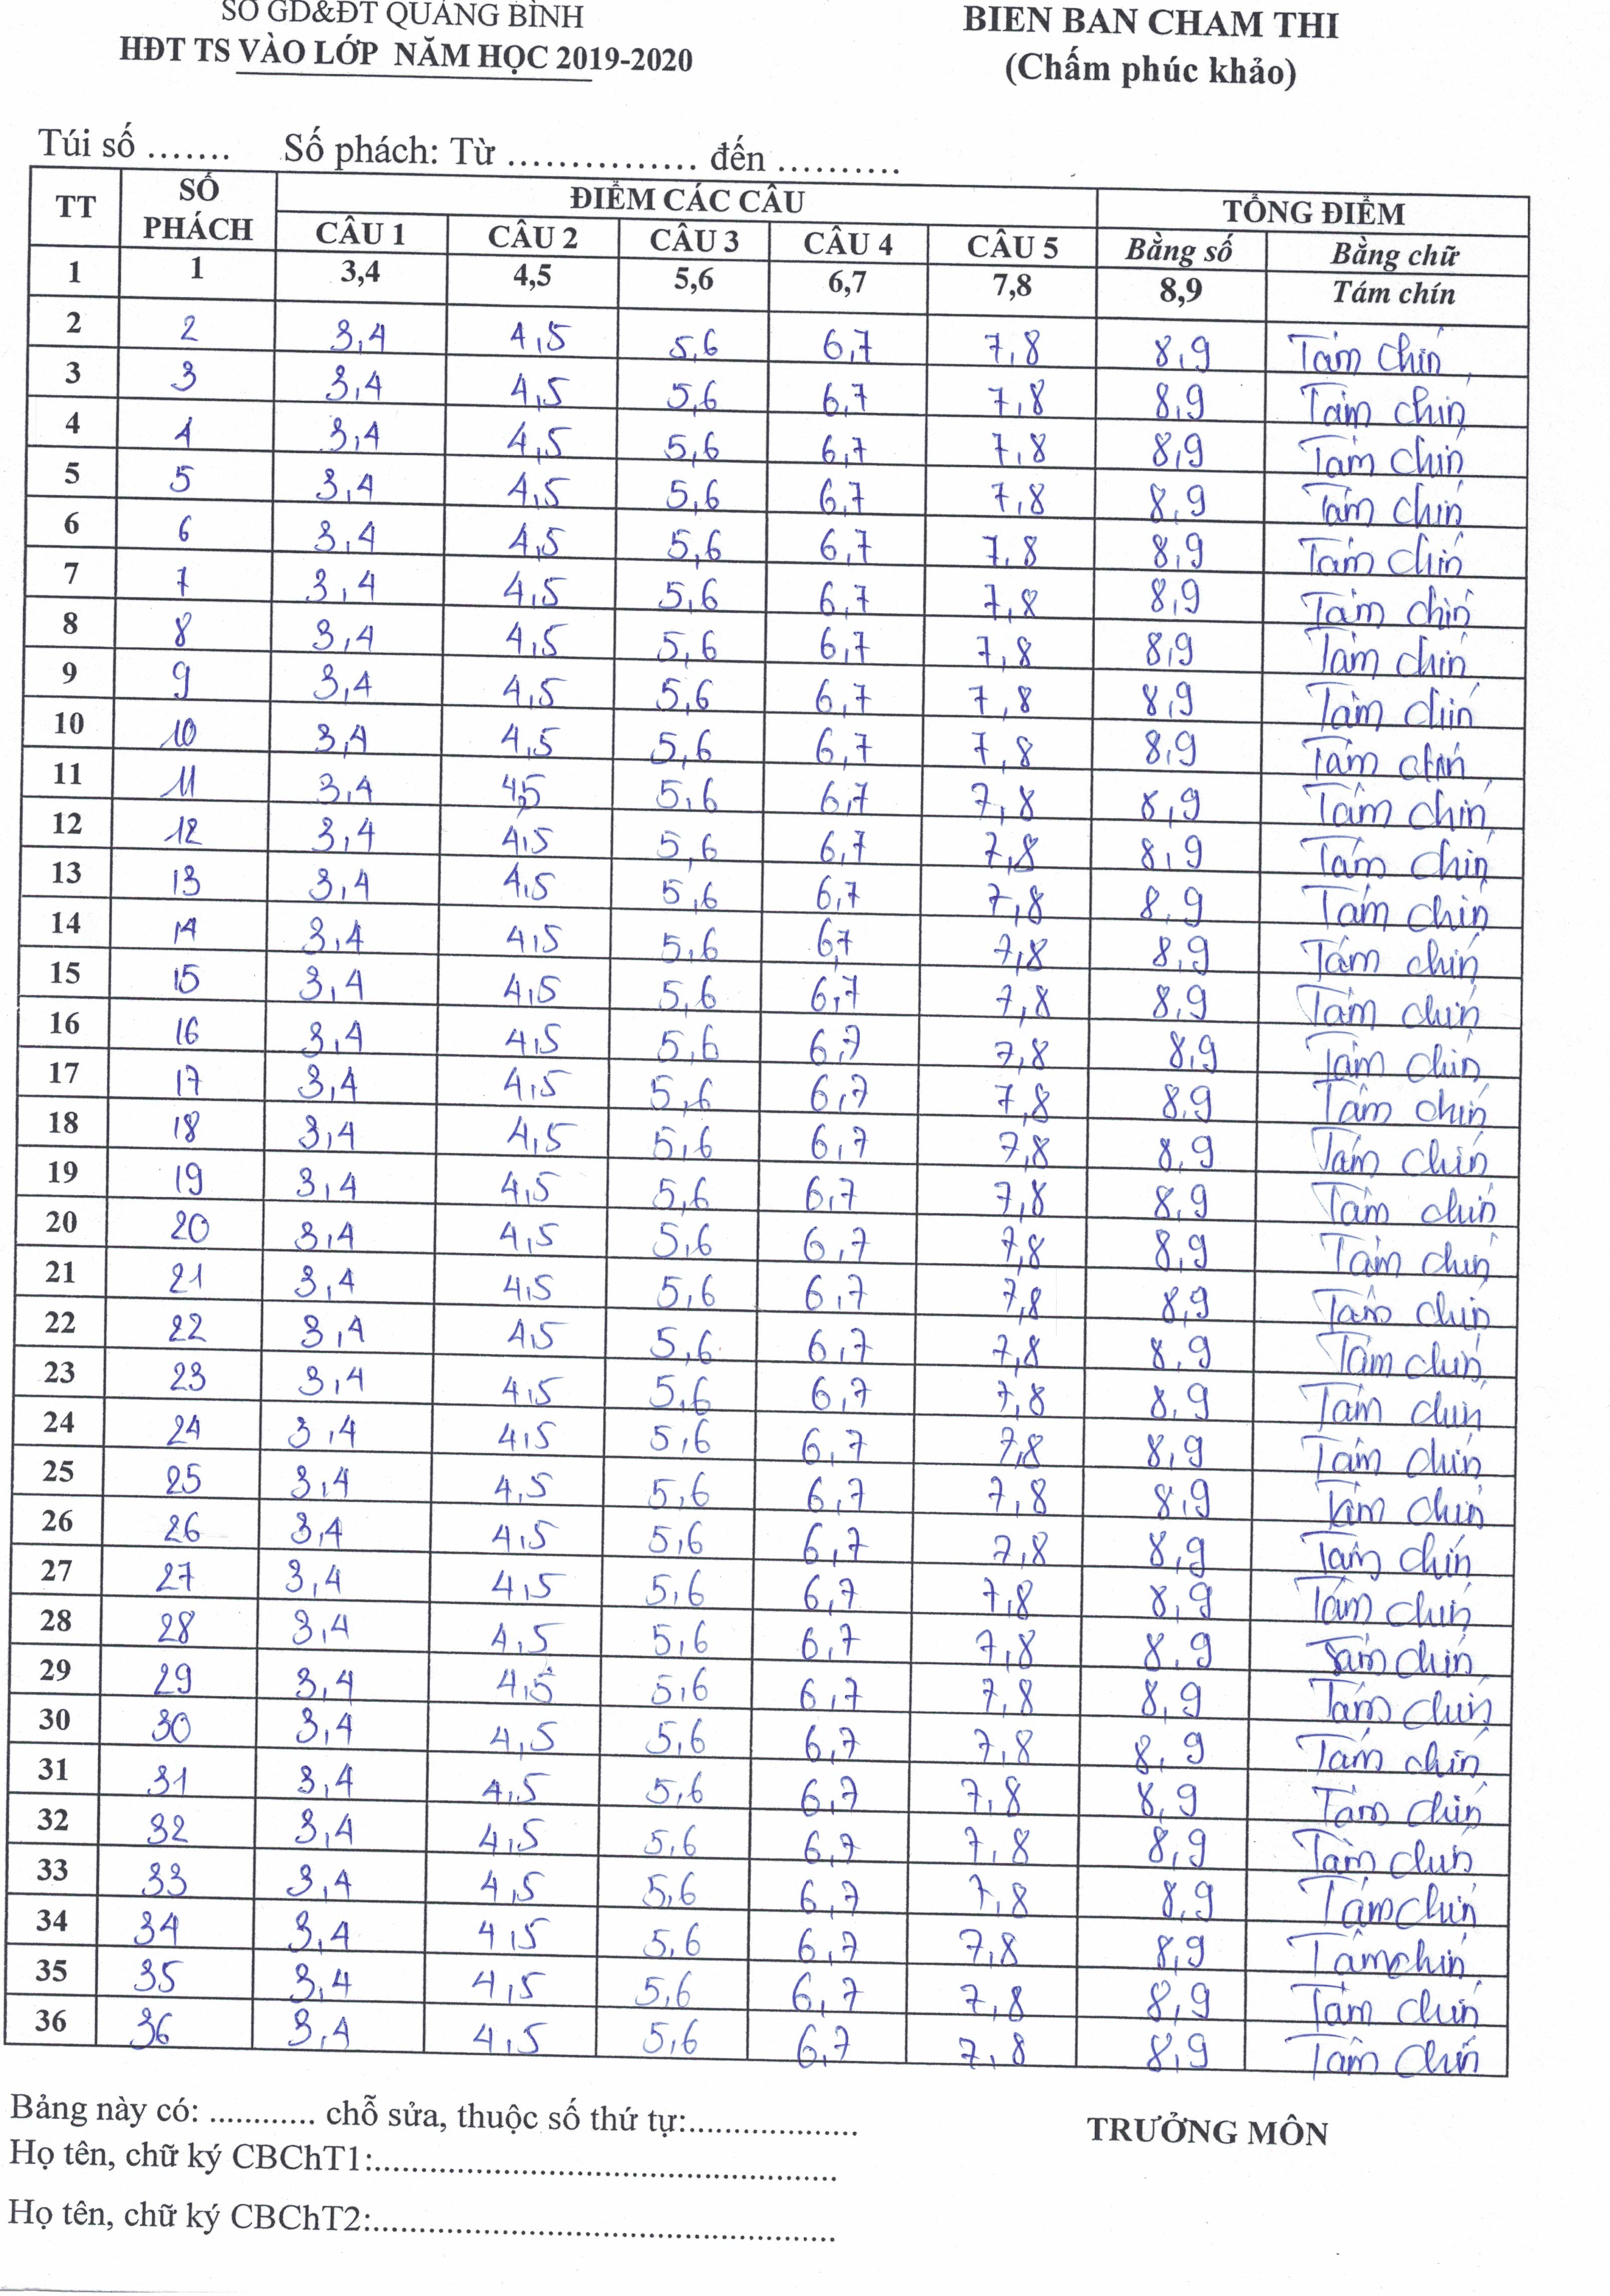 SỞ GD&ĐT QUẢNG BÌNH
HĐT TS VÀO LỚP NĂM HỌC 2019-2020
BIÊN BẢN CHẤM THI
(Chấm phúc khảo)
Túi số ....... Số phách: Từ ................ đến ..........
TT SỐ PHÁCH ĐIỂM CÁC CÂU TỔNG ĐIỂM
CÂU 1 CÂU 2 CÂU 3 CÂU 4 CÂU 5 Bằng số Bằng chữ
1 1 3,4 4,5 5,6 6,7 7,8 8,9 Tám chín
2 2 3,4 4,5 5,6 6,7 7,8 8,9 Tám chín
3 3 3,4 4,5 5,6 6,7 7,8 8,9 Tám chín
4 4 3,4 4,5 5,6 6,7 7,8 8,9 Tám chín
5 5 3,4 4,5 5,6 6,7 7,8 8,9 Tám chín
6 6 3,4 4,5 5,6 6,7 7,8 8,9 Tám chín
7 7 3,4 4,5 5,6 6,7 7,8 8,9 Tám chín
8 8 3,4 4,5 5,6 6,7 7,8 8,9 Tám chín
9 9 3,4 4,5 5,6 6,7 7,8 8,9 Tám chín
10 10 3,4 4,5 5,6 6,7 7,8 8,9 Tám chín
11 11 3,4 4,5 5,6 6,7 7,8 8,9 Tám chín
12 12 3,4 4,5 5,6 6,7 7,8 8,9 Tám chín
13 13 3,4 4,5 5,6 6,7 7,8 8,9 Tám chín
14 14 3,4 4,5 5,6 6,7 7,8 8,9 Tám chín
15 15 3,4 4,5 5,6 6,7 7,8 8,9 Tám chín
16 16 3,4 4,5 5,6 6,7 7,8 8,9 Tám chín
17 17 3,4 4,5 5,6 6,7 7,8 8,9 Tám chín
18 18 3,4 4,5 5,6 6,7 7,8 8,9 Tám chín
19 19 3,4 4,5 5,6 6,7 7,8 8,9 Tám chín
20 20 3,4 4,5 5,6 6,7 7,8 8,9 Tám chín
21 21 3,4 4,5 5,6 6,7 7,8 8,9 Tám chín
22 22 3,4 4,5 5,6 6,7 7,8 8,9 Tám chín
23 23 3,4 4,5 5,6 6,7 7,8 8,9 Tám chín
24 24 3,4 4,5 5,6 6,7 7,8 8,9 Tám chín
25 25 3,4 4,5 5,6 6,7 7,8 8,9 Tám chín
26 26 3,4 4,5 5,6 6,7 7,8 8,9 Tám chín
27 27 3,4 4,5 5,6 6,7 7,8 8,9 Tám chín
28 28 3,4 4,5 5,6 6,7 7,8 8,9 Tám chín
29 29 3,4 4,5 5,6 6,7 7,8 8,9 Tám chín
30 30 3,4 4,5 5,6 6,7 7,8 8,9 Tám chín
31 31 3,4 4,5 5,6 6,7 7,8 8,9 Tám chín
32 32 3,4 4,5 5,6 6,7 7,8 8,9 Tám chín
33 33 3,4 4,5 5,6 6,7 7,8 8,9 Tám chín
34 34 3,4 4,5 5,6 6,7 7,8 8,9 Tám chín
35 35 3,4 4,5 5,6 6,7 7,8 8,9 Tám chín
36 36 3,4 4,5 5,6 6,7 7,8 8,9 Tám chín
Bảng này có: ............ chỗ sửa, thuộc số thứ tự:...................
TRƯỞNG MÔN
Họ tên, chữ ký CBChT1:..................................................
Họ tên, chữ ký CBChT2:..................................................